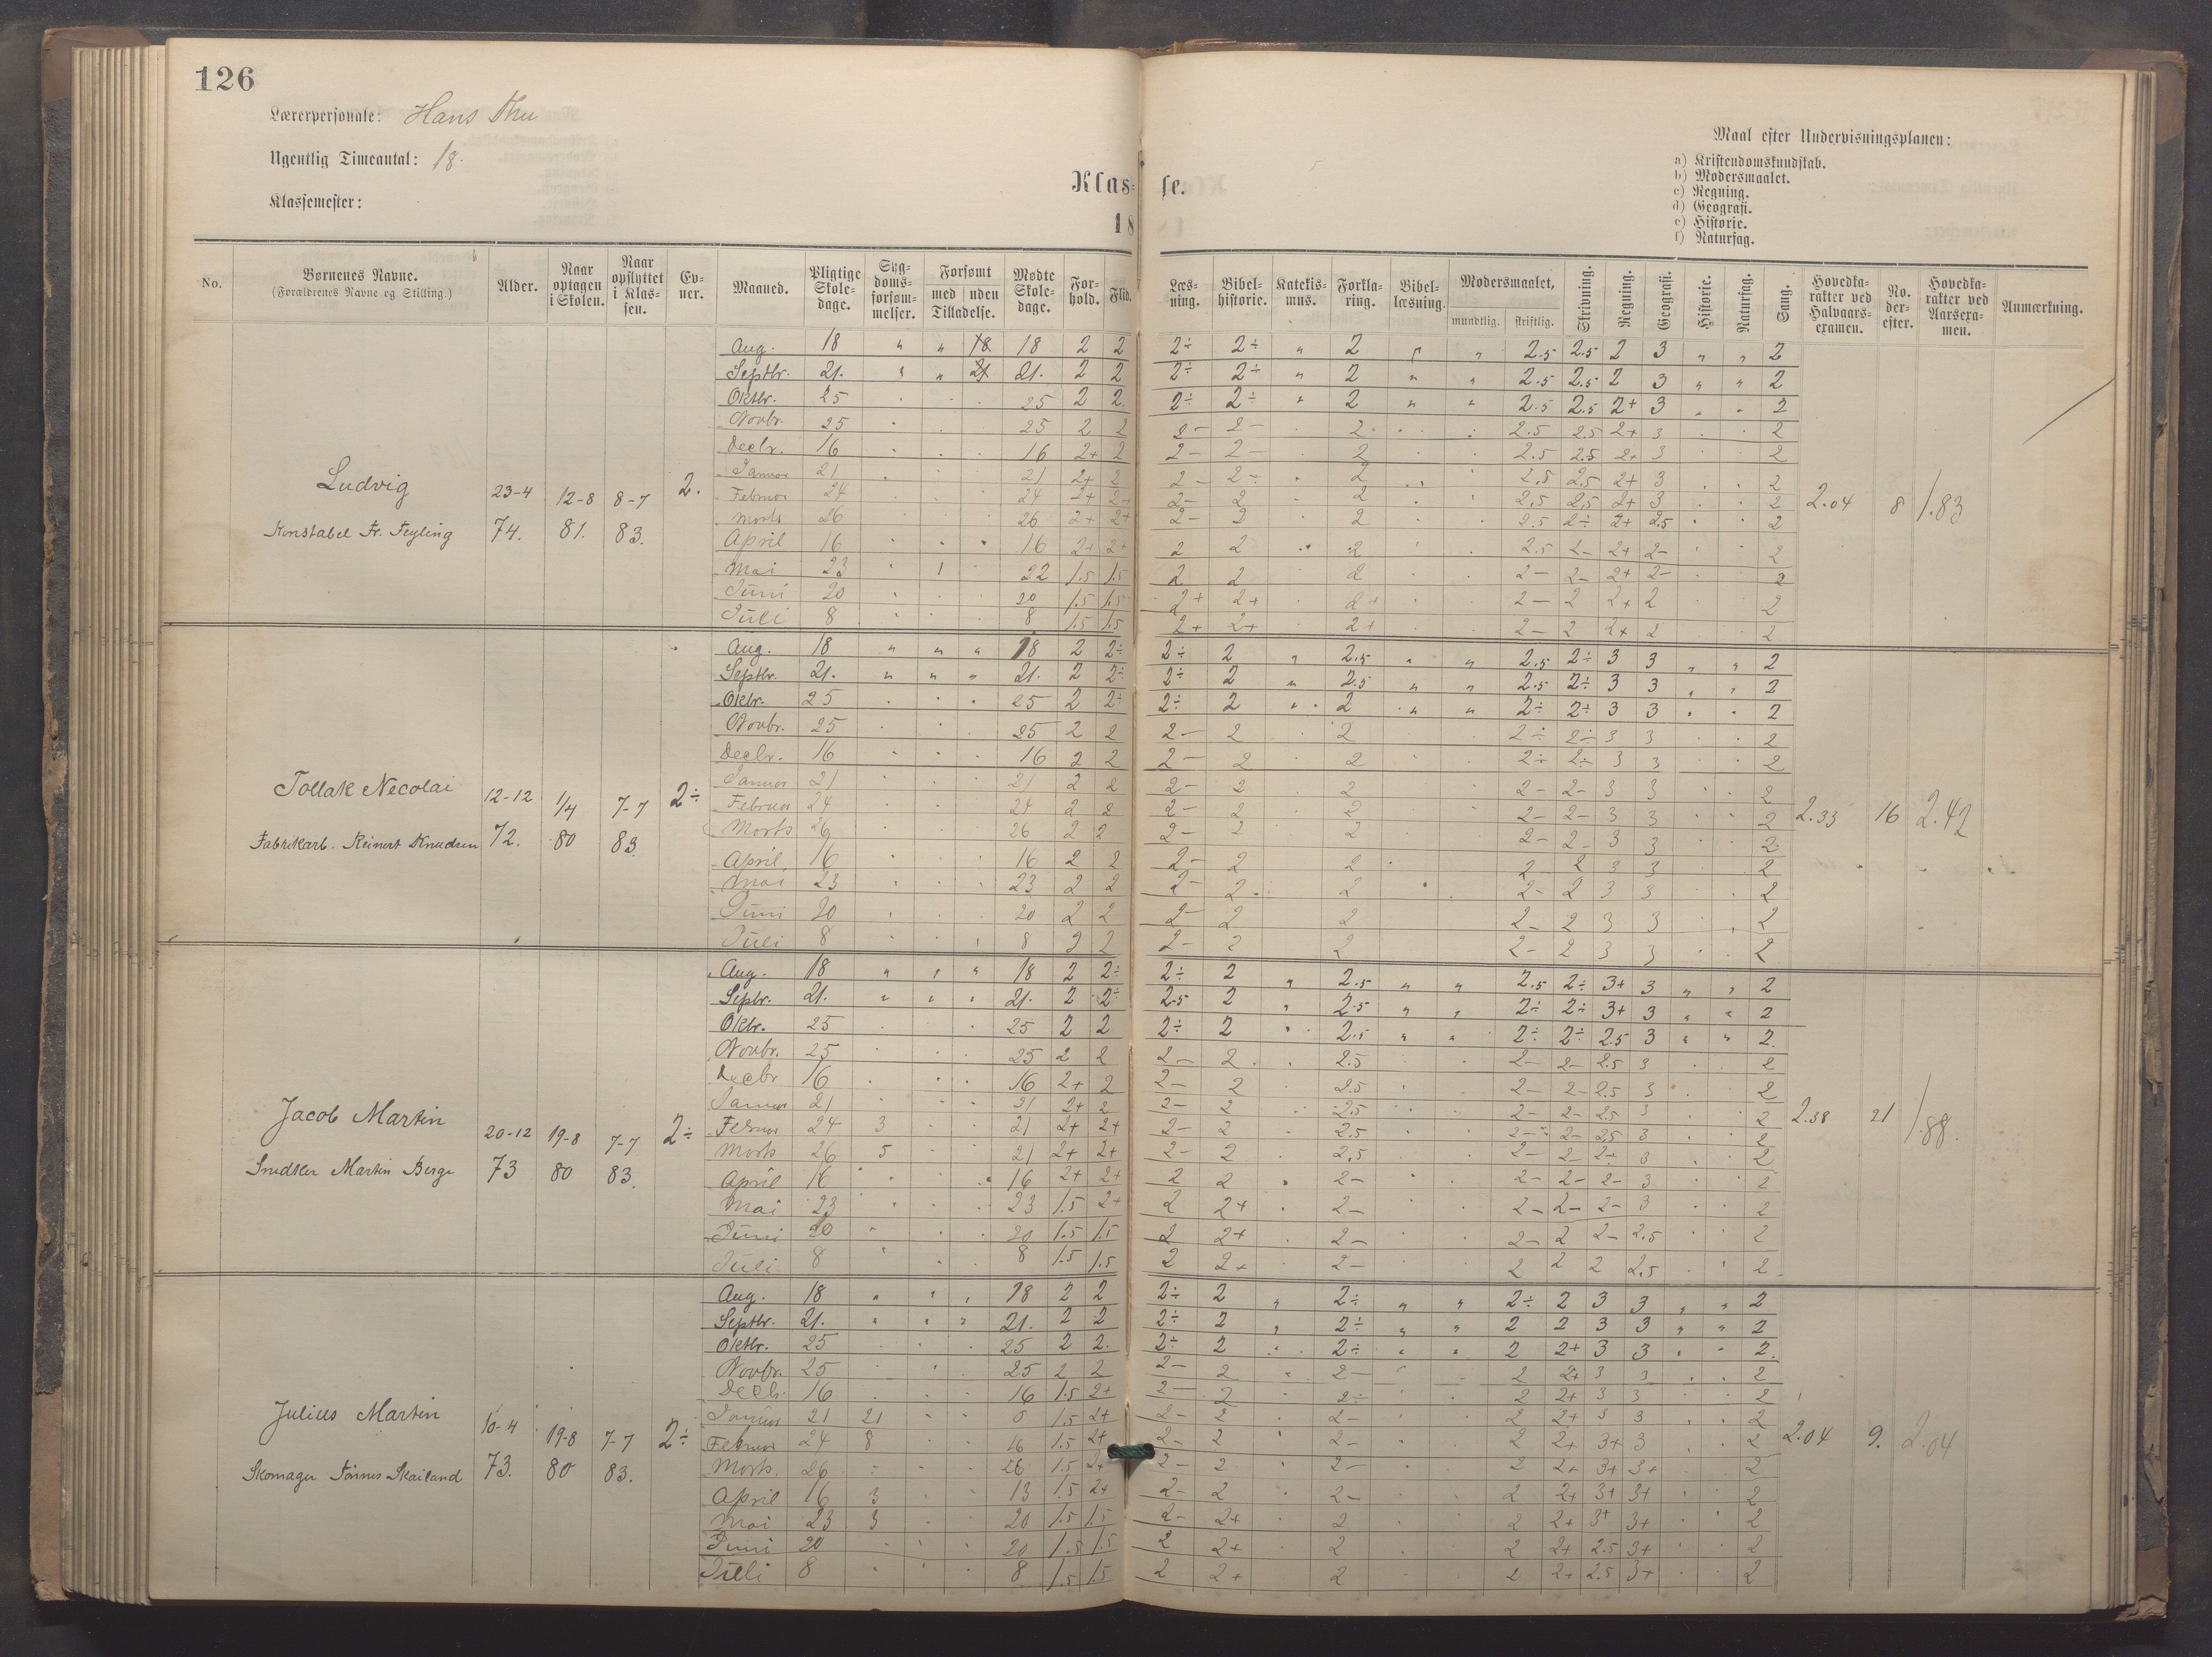 126
Lærerpersonale: Hans Thu
Ugentlig Timeantal: 18.
Klassemester:
Klas= se.
18
Maal efter Undervisningsplanen:
a) Kristendomskundskab.
b) Modersmaalet.
c) Regning.
d) Geografi.
e) Historie.
f) Naturfag.
No. Børnenes Navne. (Forældrenes Navne og Stilling.) Alder. Naar optagen i Skolen. Naar opflyttet i Klassen. Evner. Maaned. Pligtige Skoledage. Sygdomsforsømmelser. Forsømt med uden Tilladelse. Mødte Skoledage. Forhold. Flid. Læsning. Bibelhistorie. Katekismus. Forklaring. Bibellæsning. Modersmaalet, mundtlig. skriftlig. Skrivning. Regning. Geografi. Historie. Naturfag. Sang. Hovedkarakter ved Halvaarsexamen. No. derefter. Hovedkarakter ved Aarsexamen. Anmærkning.
Ludvig
Konstabel Fr. Feyling
23-4 74. 12-8 81. 8-7 83. 2. 2.04 8 1.83
Aug. 18 " " 18 18 2 2 2÷ 2÷ " 2 " " 2.5 2.5 2 3 " " 2
Septbr. 21. " " 21 21. 2 2 2÷ 2÷ " 2 " " 2.5 2.5 2 3 " " 2
Oktbr. 25 25 2 2. 2÷ 2÷ " 2 " " 2.5 2.5 2+ 3 2
Novbr. 25 25 2 2 2- 2- 2 2.5 2.5 2+ 3 2
Decbr. 16 16 2+ 2 2- 2- 2 2.5 2.5 2+ 3 2
Januar 21 21 2+ 2 2- 2- 2 2.5 2.5 2+ 3 2
Februar 24 24 2+ 2+ 2- 2 2 2.5 2.5 2+ 3 2
Marts 26 26 2+ 2+ 2- 2 2 2.5 2÷ 2+ 2.5 2
April 16 16 2+ 2+ 2 2 2 2.5 2- 2+ 2- 2
Mai 23 1 22 1.5 1.5 2 2 2 2- 2- 2+ 2- 2
Juni 20 20 1.5 1.5 2+ 2+ 2+ 2- 2 2+ 2 2
Juli 8 8 1.5 1.5 2+ 2+ 2+ 2- 2 2+ 2 2
Tollak Necolai
Fabrikarb. Reinert Knudsen
12-12 72. 1/4 80 7-7 83 2÷ 2.33 16 2.42
Aug. 18 " " " 18 2 2÷ 2÷ 2 " 2.5 " " 2.5 2÷ 3 3 " " 2
Septbr. 21. " " " 21. 2 2÷ 2÷ 2 " 2.5 " " 2.5 2÷ 3 3 " " 2
Oktbr. 25 25 2 2÷ 2÷ 2 " 2 " " 2÷ 2÷ 3 3 2
Novbr. 25 25 2 2 2- 2 2 2÷ 2÷ 3 3 2
Decbr. 16 16 2 2 2- 2 2 2÷ 2÷ 3 3 2
Januar 21 21 2 2 2- 2 2 2- 2- 3 3 2
Februar 24 24 2 2 2- 2 2 2- 2- 3 3 2
Marts 26 26 2 2 2- 2 2 2- 2- 3 3 2
April 16 16 2 2 2- 2 2 2- 2 3 3 2
Mai 23 23 2 2 2- 2 2 2- 2 3 3 2
Juni 20 20 2 2 2- 2 2 2- 2 3 3 2
Juli 8 8 2 2 2- 2 2 2- 2 3 3 2
Jacob Martin
Snedker Martin Berge
20-12 73 19-8 80 7-7 83. 2÷ 2.38 21 1.88.
Aug. 18 " " " 18 2 2÷ 2÷ 2 " 2.5 " " 2.5 2÷ 3+ 3 " " 2
Septbr. 21. " " " 21. 2 2÷ 2.5 2 " 2.5 " " 2÷ 2÷ 3+ 3 " " 2
Oktbr. 25 25 2 2 2÷ 2 " 2.5 " " 2÷ 2÷ 2.5 3 " " 2.
Novbr. 25 25 2 2 2- 2 2.5 2- 2- 2.5 3 2
Decbr 16 16 2+ 2 2- 2 2.5 2- 2- 2.5 3 2
Januar 21 21 2+ 2 2- 2 2.5 2- 2- 2.5 3 2
Februar 24 3 21 2+ 2+ 2- 2 2.5 2- 2- 2.5 3 2
Marts 26 5 21 2+ 2+ 2- 2 2.5 2- 2- 2÷ 3 2
April 16 16 2+ 2+ 2 2 2- 2- 2- 2- 3 2
Mai 23 23 1.5 2+ 2 2+ 2- 2- 2- 2- 3 2
Juni 20 20 1.5 1.5 2 2+ 2- 2- 2 2- 2.5 2
Juli 8 8 1.5 1.5 2 2+ 2- 2 2 2 2.5 2
Julius Martin
Skomager Tønnes Skailand
10-4 73. 19-8 80 7-7 83. 2÷ 2.04 9. 2.04
Aug. 18 " " " 18 2 2 2÷ 2 " 2÷ " " 2÷ 2 3 3 " " 2
Septbr. 21. " " " 21. 2 2 2÷ 2 " 2÷ " " 2 2 3 3 " " 2
Oktbr. 25 25 2 2. 2÷ 2 2÷ " " 2 2+ 3 3 2.
Novbr. 25 25 2 2 2- 2 2- 2 2+ 3 3 2
Decbr. 16 16 1.5 2+ 2- 2 2÷ 2 2+ 3 3 2
Januar 21 21 0 1.5 2+ 2- 2 2- 2 2+ 3 3 2
Februar 24 8 16 1.5 2+ 2- 2 2- 2 2+ 3+ 3 2
Marts. 26 26 1.5 2+ 2- 2 2- 2 2+ 3+ 3+ 2
April 16 3 13 1.5 2+ 2- 2 2- 2 2+ 3+ 3+ 2
Mai 23 3 20 1.5 1.5 2- 2+ 2 2 2+ 3+ 3+ 2
Juni 20 20 1.5 1.5 2 2+ 2 2 2+ 2.5 3+ 2
Juli 8 8 1.5 1.5 2 2+ 2 2 2+ 2.5 3+ 2